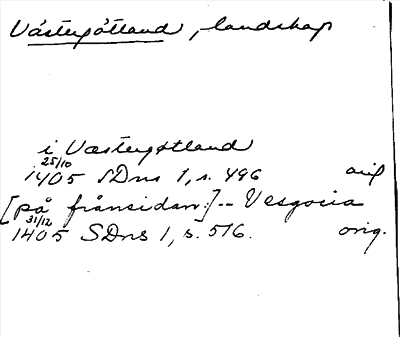 Västergötland, landskap
i Væstergøtland
25/10
1405 SDns 1, s. 496 orig
[på frånsidan:]-- Vesgocia
31/12
1405 SDns 1, s. 516. orig.